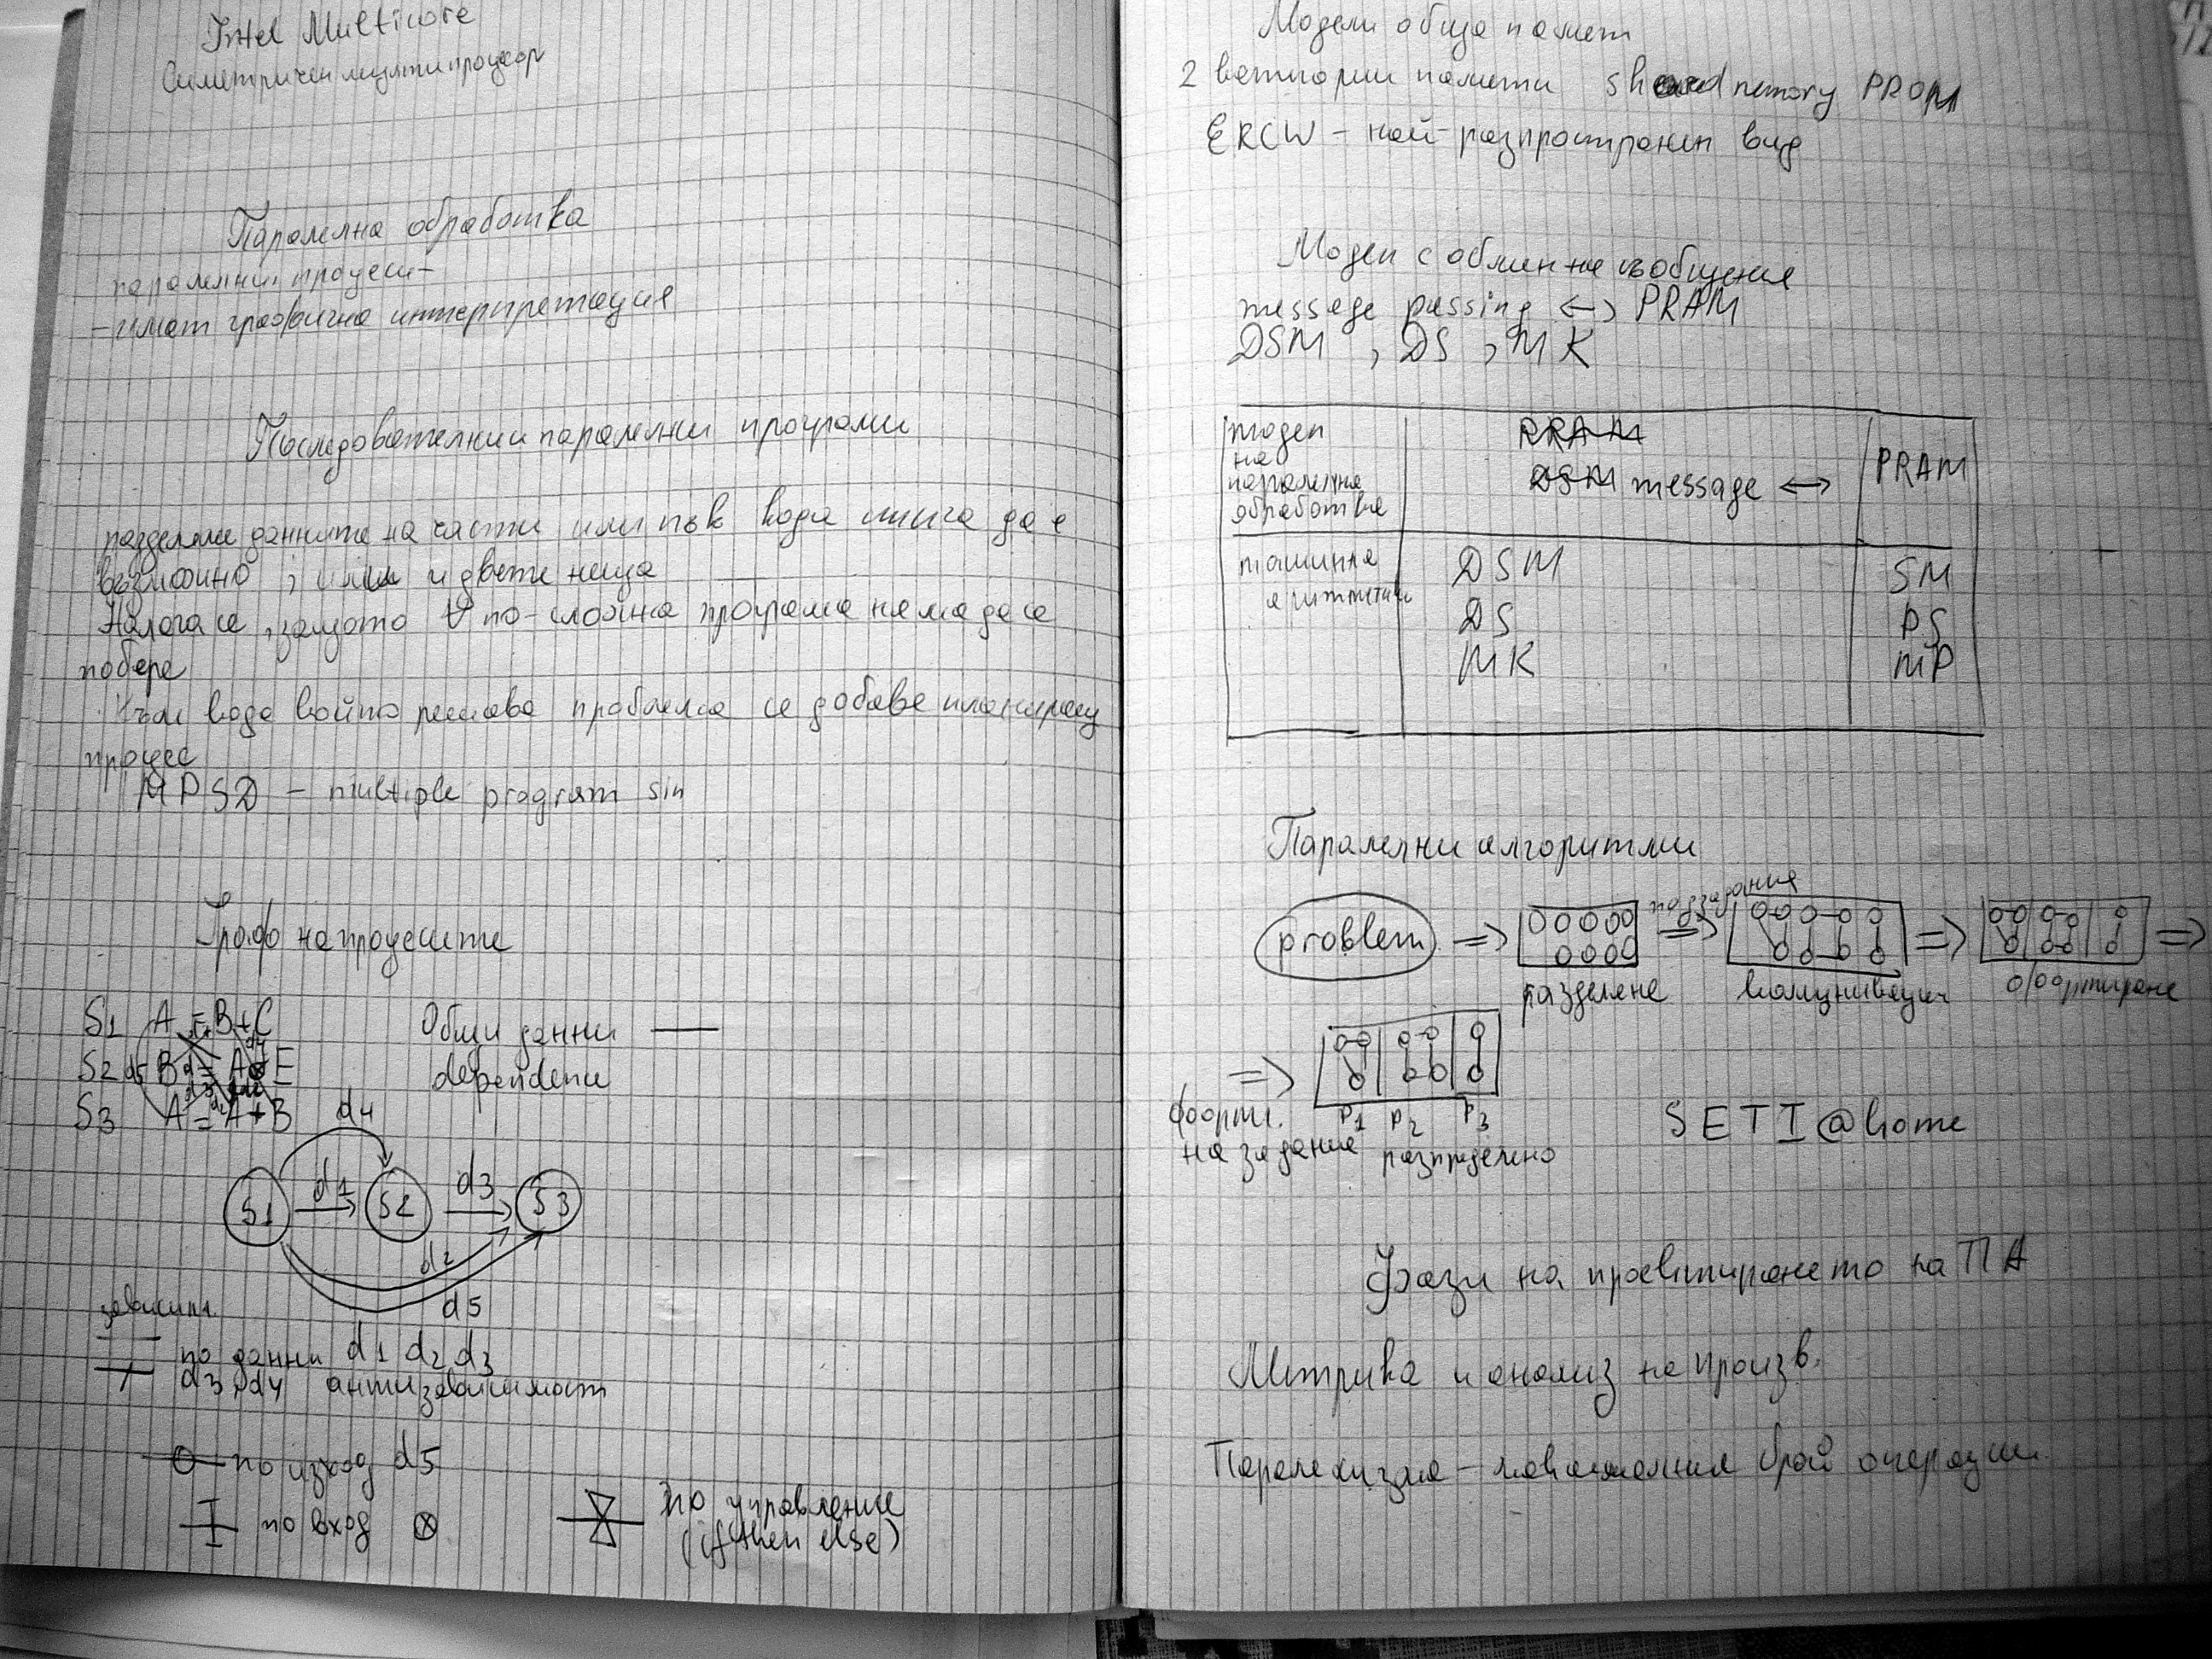 Intel Multicore
Симетричен мултипроцесор
Паралелна обработка
паралелни процеси –
– имат графична интерпретация
Последователни и паралелни програми
разделяме данните на части или пък кода ако може да е
възможно , или и двете неща
Налага се , защото по-сложна програма няма да се
побере
Към кода който решава проблема се добавя планиращ
процес
MPSD – multiple program sin
Граф на процесите
S1 A = B+C
S2 d5 B = A E
S3 A = A+B
Общи данни —
dependenc
d4
S1 d1 S2 d3 S3
d2
d5
зависим.
по данни d1 d2 d3
d3, d4 антизависимост
по изход d5
по вход
по управление
(if then else)
Модели обща памет
2 категории памети shared memory PRAM
ERCW – най-разпространен вид
Модел с обмен на съобщения
message passing <-> PRAM
DSM , DS , MK
модел
на
паралелна
обработка
PRAM
DSM message <->
PRAM
машинна
архитектура
DSM
DS
MK
SM
PS
MP
Паралелни алгоритми
problem => => подзадания => =>
разделяне комуникации оформяне
=>
форм. P1 P2 P3
на задание разпределено
SETI@home
Фази на проектирането на ПА
Метрика и анализ на произв.
Паралелизма – максимални брой операции